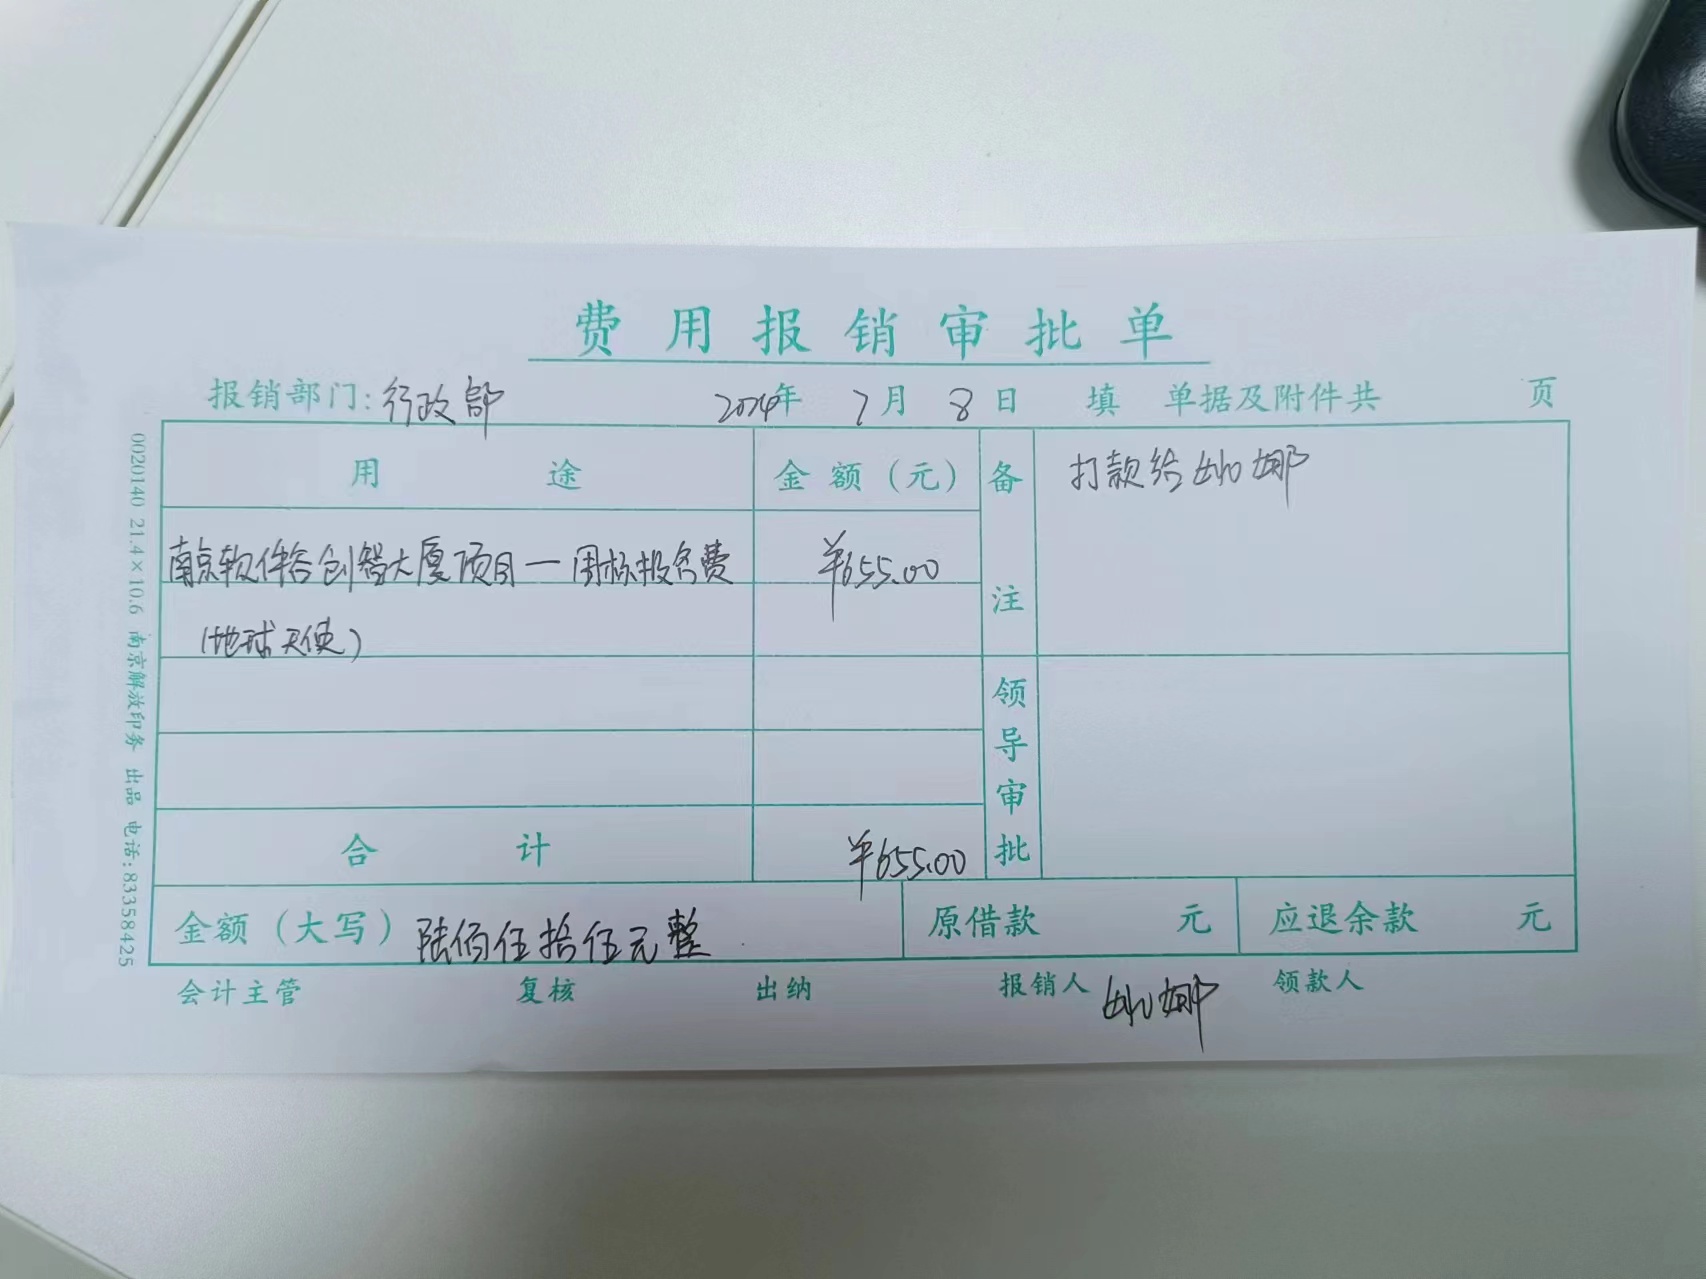 费用报销审批单
报销部门：行政部 2024年 7月 8日 填 单据及附件共 页
用途 金额（元） 备注 打款给 娜
南京软件谷创智大厦项目—围标报名费 ¥655.00
（地球天使）
领导审批
合计 ¥655.00
金额（大写） 陆佰伍拾伍元整 原借款 元 应退余款 元
会计主管 复核 出纳 报销人 娜 领款人
0020140 21.4×10.6 南京解放印务 出品 电话：83358425